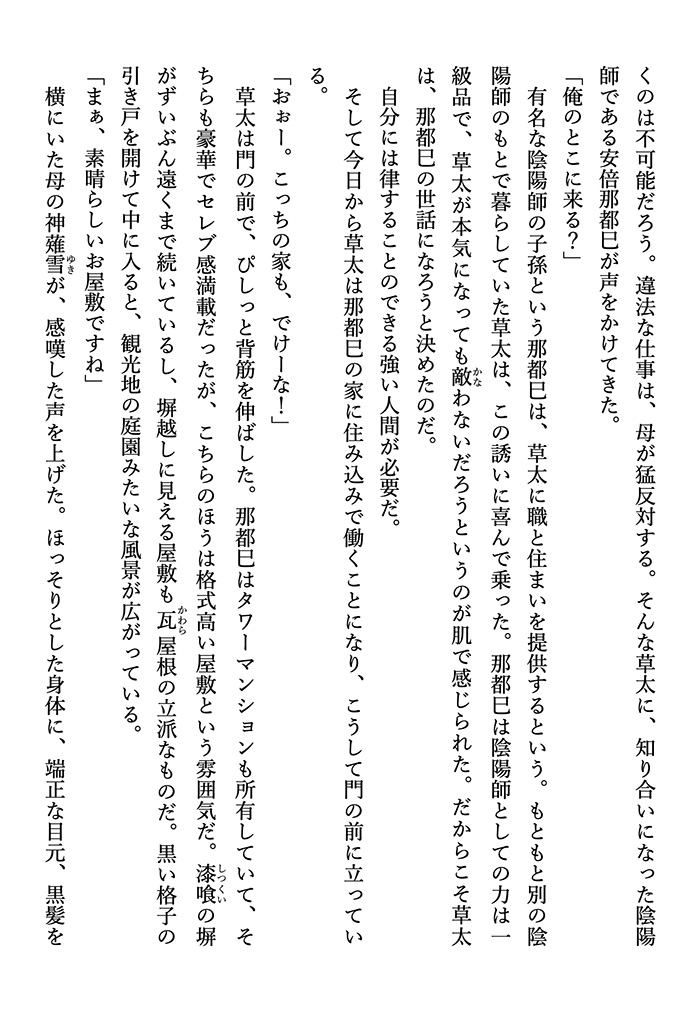 くのは不可能だろう。違法な仕事は、母が猛反対する。そんな草太に、知り合いになった陰陽
師である安倍那都巳が声をかけてきた。
「俺のとこに来る？」
有名な陰陽師の子孫という那都巳は、草太に職と住まいを提供するという。もともと別の陰
陽師のもとで暮らしていた草太は、この誘いに喜んで乗った。那都巳は陰陽師としての力は一
級品で、草太が本気になっても敵わないだろうというのが肌で感じられた。だからこそ草太
は、那都巳の世話になろうと決めたのだ。
自分には律することのできる強い人間が必要だ。
そして今日から草太は那都巳の家に住み込みで働くことになり、こうして門の前に立ってい
る。
「おぉー。こっちの家も、でけーな！」
草太は門の前で、ぴしっと背筋を伸ばした。那都巳はタワーマンションも所有していて、そ
ちらも豪華でセレブ感満載だったが、こちらのほうは格式高い屋敷という雰囲気だ。漆喰の塀
がずいぶん遠くまで続いているし、塀越しに見える屋敷も瓦屋根の立派なものだ。黒い格子の
引き戸を開けて中に入ると、観光地の庭園みたいな風景が広がっている。
「まぁ、素晴らしいお屋敷ですね」
横にいた母の神薙雪が、感嘆した声を上げた。ほっそりとした身体に、端正な目元、黒髪を
かな
しつくい
かわら
ゆき